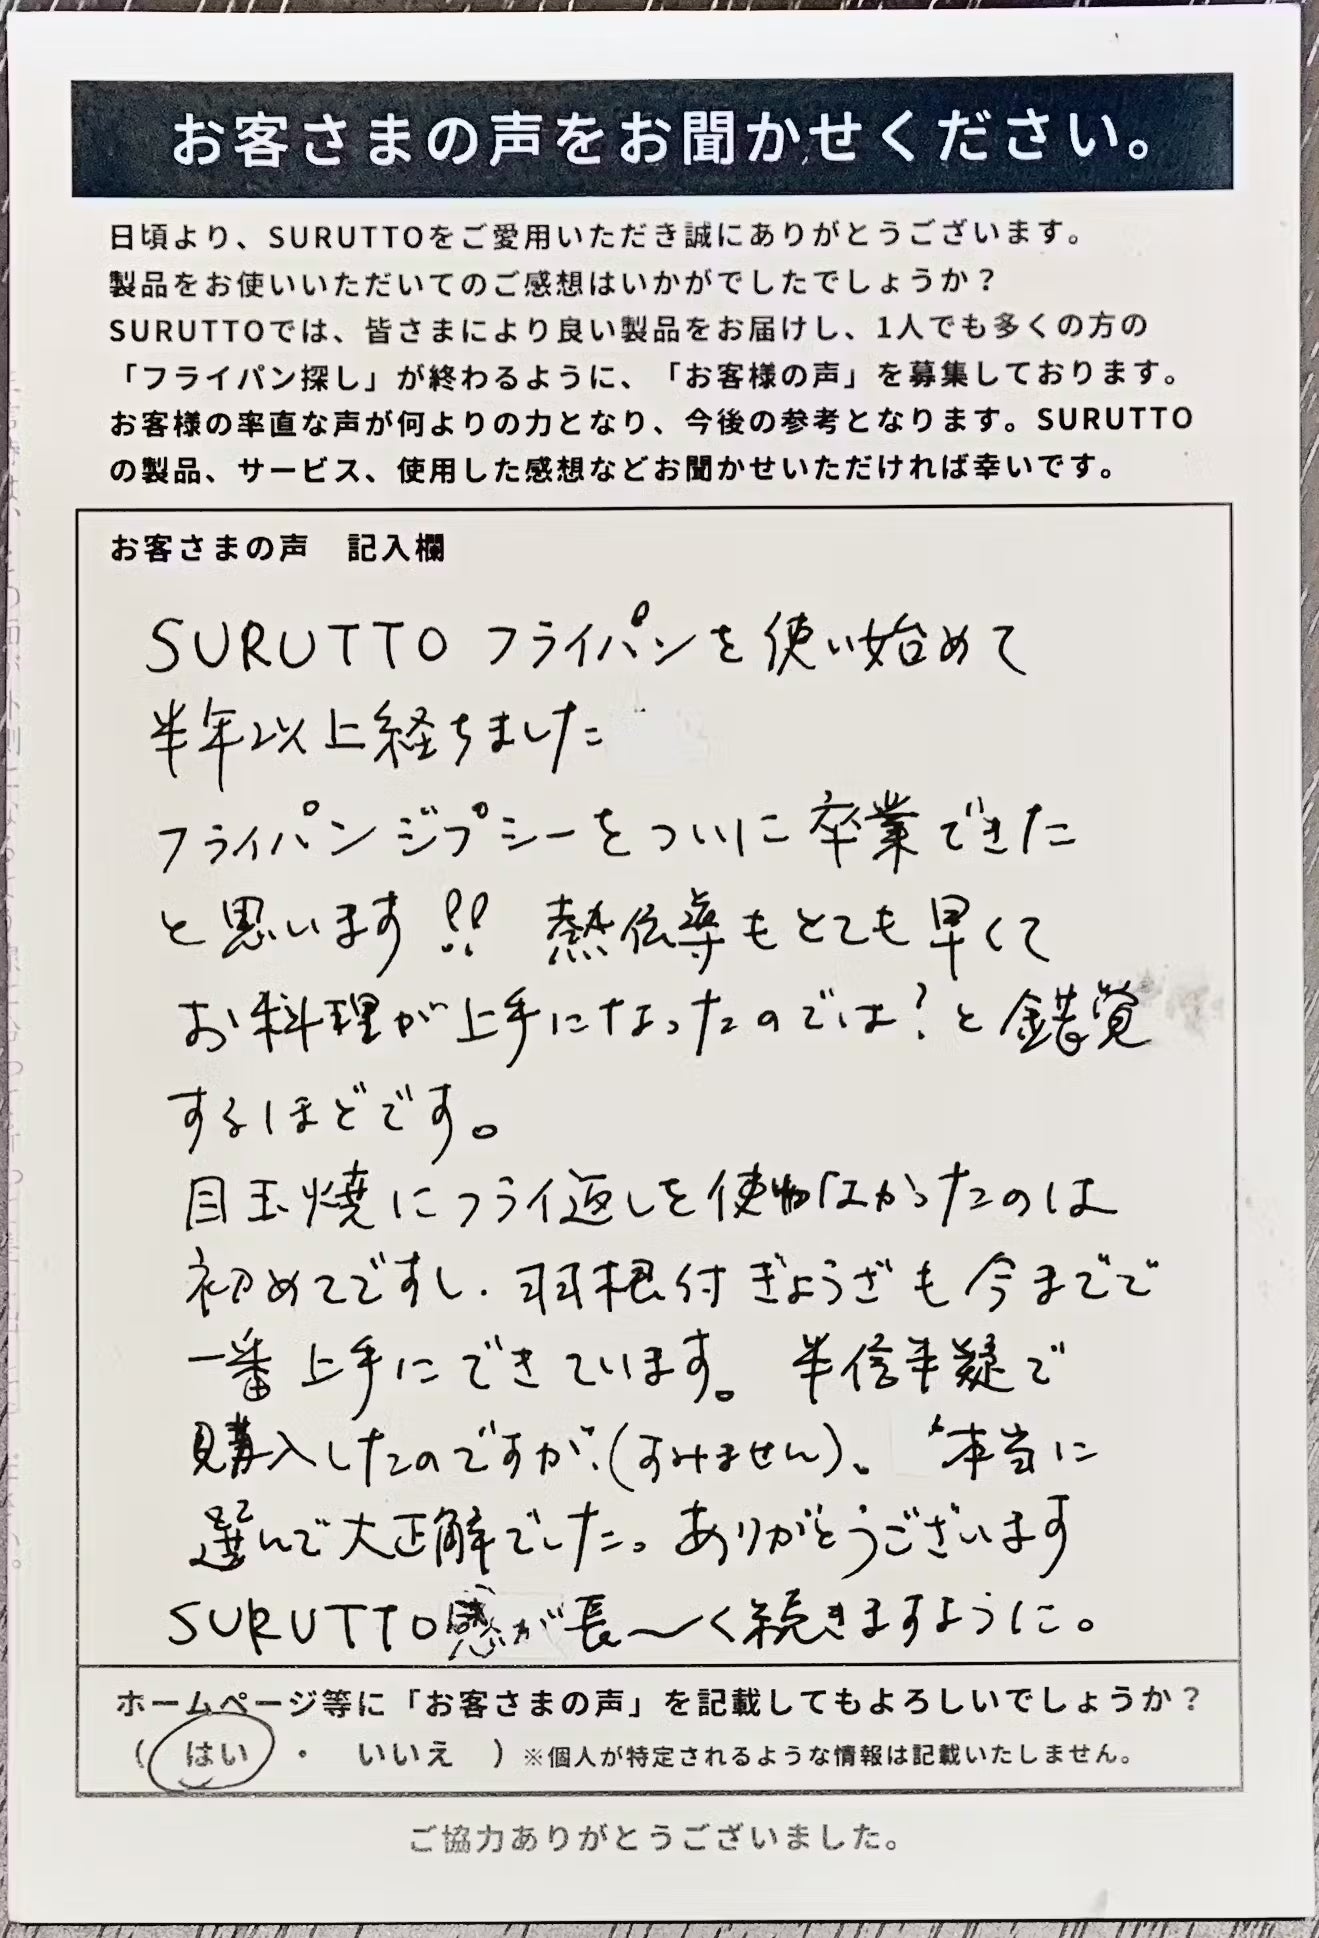 お客さまの声をお聞かせください。
日頃より、SURUTTOをご愛用いただき誠にありがとうございます。
製品をお使いいただいてのご感想はいかがでしたでしょうか？
SURUTTOでは、皆さまにより良い製品をお届けし、1人でも多くの方の
「フライパン探し」が終わるように、「お客様の声」を募集しております。
お客様の率直な声が何よりの力となり、今後の参考となります。SURUTTO
の製品、サービス、使用した感想などお聞かせいただければ幸いです。
お客さまの声　記入欄
SURUTTO フライパンを使い始めて
半年以上経ちました
フライパンジプシーをついに卒業できた
と思います!! 熱伝導もとても早くて
お料理が上手になったのでは?と錯覚
するほどです。
目玉焼にフライ返しを使わなかったのは
初めてですし、羽根付ぎょうざも今までで
一番上手にできています。半信半疑で
購入したのですが、(すみません)。本当に
選んで大正解でした。ありがとうございます
SURUTTO感が長〜く続きますように。
ホームページ等に「お客さまの声」を記載してもよろしいでしょうか？
（ はい ・ いいえ ）※個人が特定されるような情報は記載いたしません。
ご協力ありがとうございました。